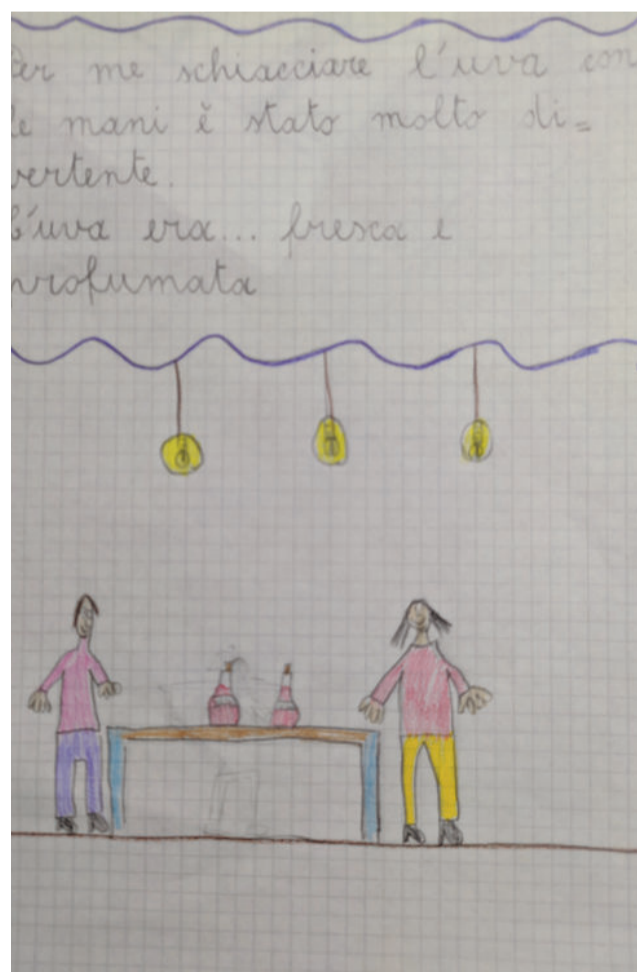 Per me schiacciare l'uva con
le mani è stato molto di=
vertente.
L'uva era... fresca e
profumata